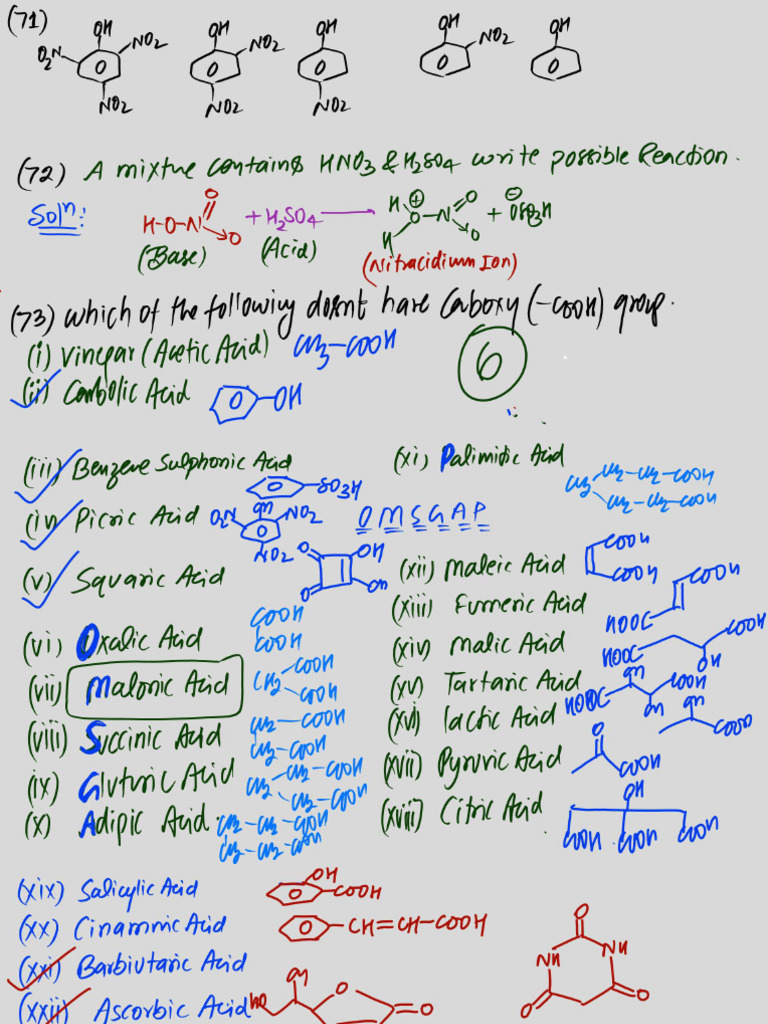 (71) OH OH OH OH OH
O₂N NO₂ NO₂ NO₂
NO₂ NO₂ NO₂
(72) A mixture contains HNO3 & H2SO4 write possible Reaction.
Soln: H-O-N O O + H2SO4 → H H O ⊕ -N O O + ⊖ OSO3H
(Base) (Acid) (Nitracidium Ion)
(73) which of the following doesnt have Caboxy (-COOH) group.
(i) vinegar (Acetic Acid) CH3-COOH
6
(ii) Carbolic Acid -OH
(iii) Benzene Sulphonic Acid -SO3H
(iv) Picric Acid O2N OH NO2 NO2
O M S G A P
(v) Squaric Acid O O OH OH
(vi) Oxalic Acid COOH COOH
(vii) Malonic Acid CH2 COOH COOH
(viii) Succinic Acid CH2-COOH CH2-COOH
(ix) Gluturic Acid CH2 CH2-COOH CH2-COOH
(x) Adipic Acid CH2-CH2-COOH CH2-CH2-COOH
(xi) Palimitic Acid CH3 CH2-CH2-COOH CH2-CH2-COOH
(xii) Maleic Acid COOH COOH
(xiii) Fumeric Acid COOH HOOC
(xiv) Malic Acid HOOC COOH OH
(xv) Tartaric Acid HOOC OH COOH OH
(xvi) lactic Acid OH COOO
(xvii) Pyruvic Acid O COOH
(xviii) Citric Acid OH COOH COOH COOH
(xix) Salicylic Acid OH COOH
(xx) Cinammic Acid -CH=CH-COOH
(xxi) Barbiutaric Acid O NH NH O O
(xxii) Ascorbic Acid HO OH O =O